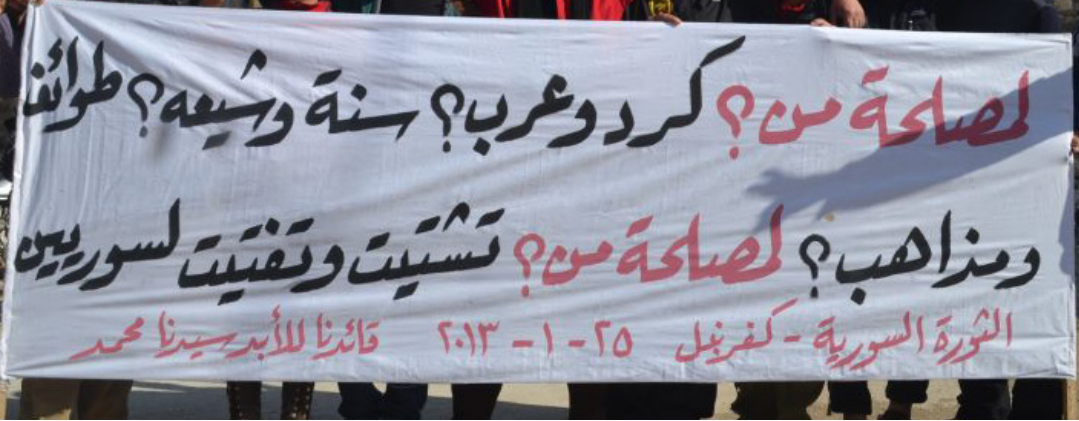 لمصلحة من؟ كرد وعرب؟ سنة وشيعه؟ طوائف
ومذاهب؟ لمصلحة من؟ تشتيت وتفتيت لسوريين
الثورة السورية - كفرنبل ٢٥ - ١ - ٢٠١٣ قائدنا للأبد سيدنا محمد